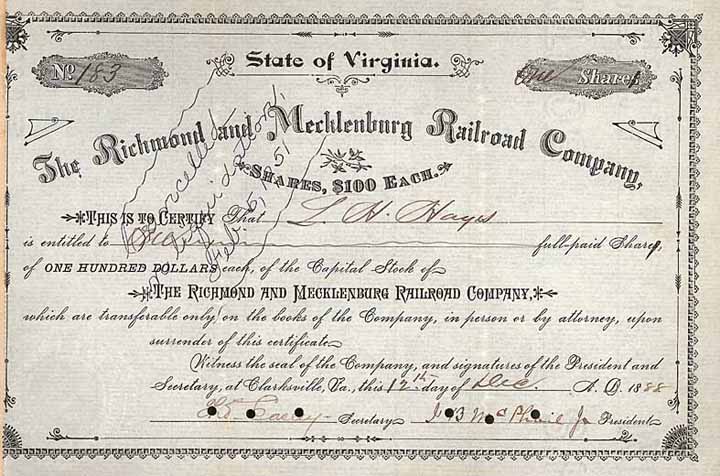 State of Virginia.
Nº 183
One Share
The Richmond and Mecklenburg Railroad Company,
SHARES, $100 EACH.
THIS IS TO CERTIFY That L. H. Hayes
is entitled to One full-paid Share,
of ONE HUNDRED DOLLARS each, of the Capital Stock of
THE RICHMOND AND MECKLENBURG RAILROAD COMPANY,
which are transferable only on the books of the Company, in person or by attorney, upon
surrender of this certificate
Witness the seal of the Company, and signatures of the President and
Secretary, at Clarksville, Va., this 12th day of Dec. A. D. 1888
Secretary President
Cancelled
in liquidation,
Feb. 6, 1951